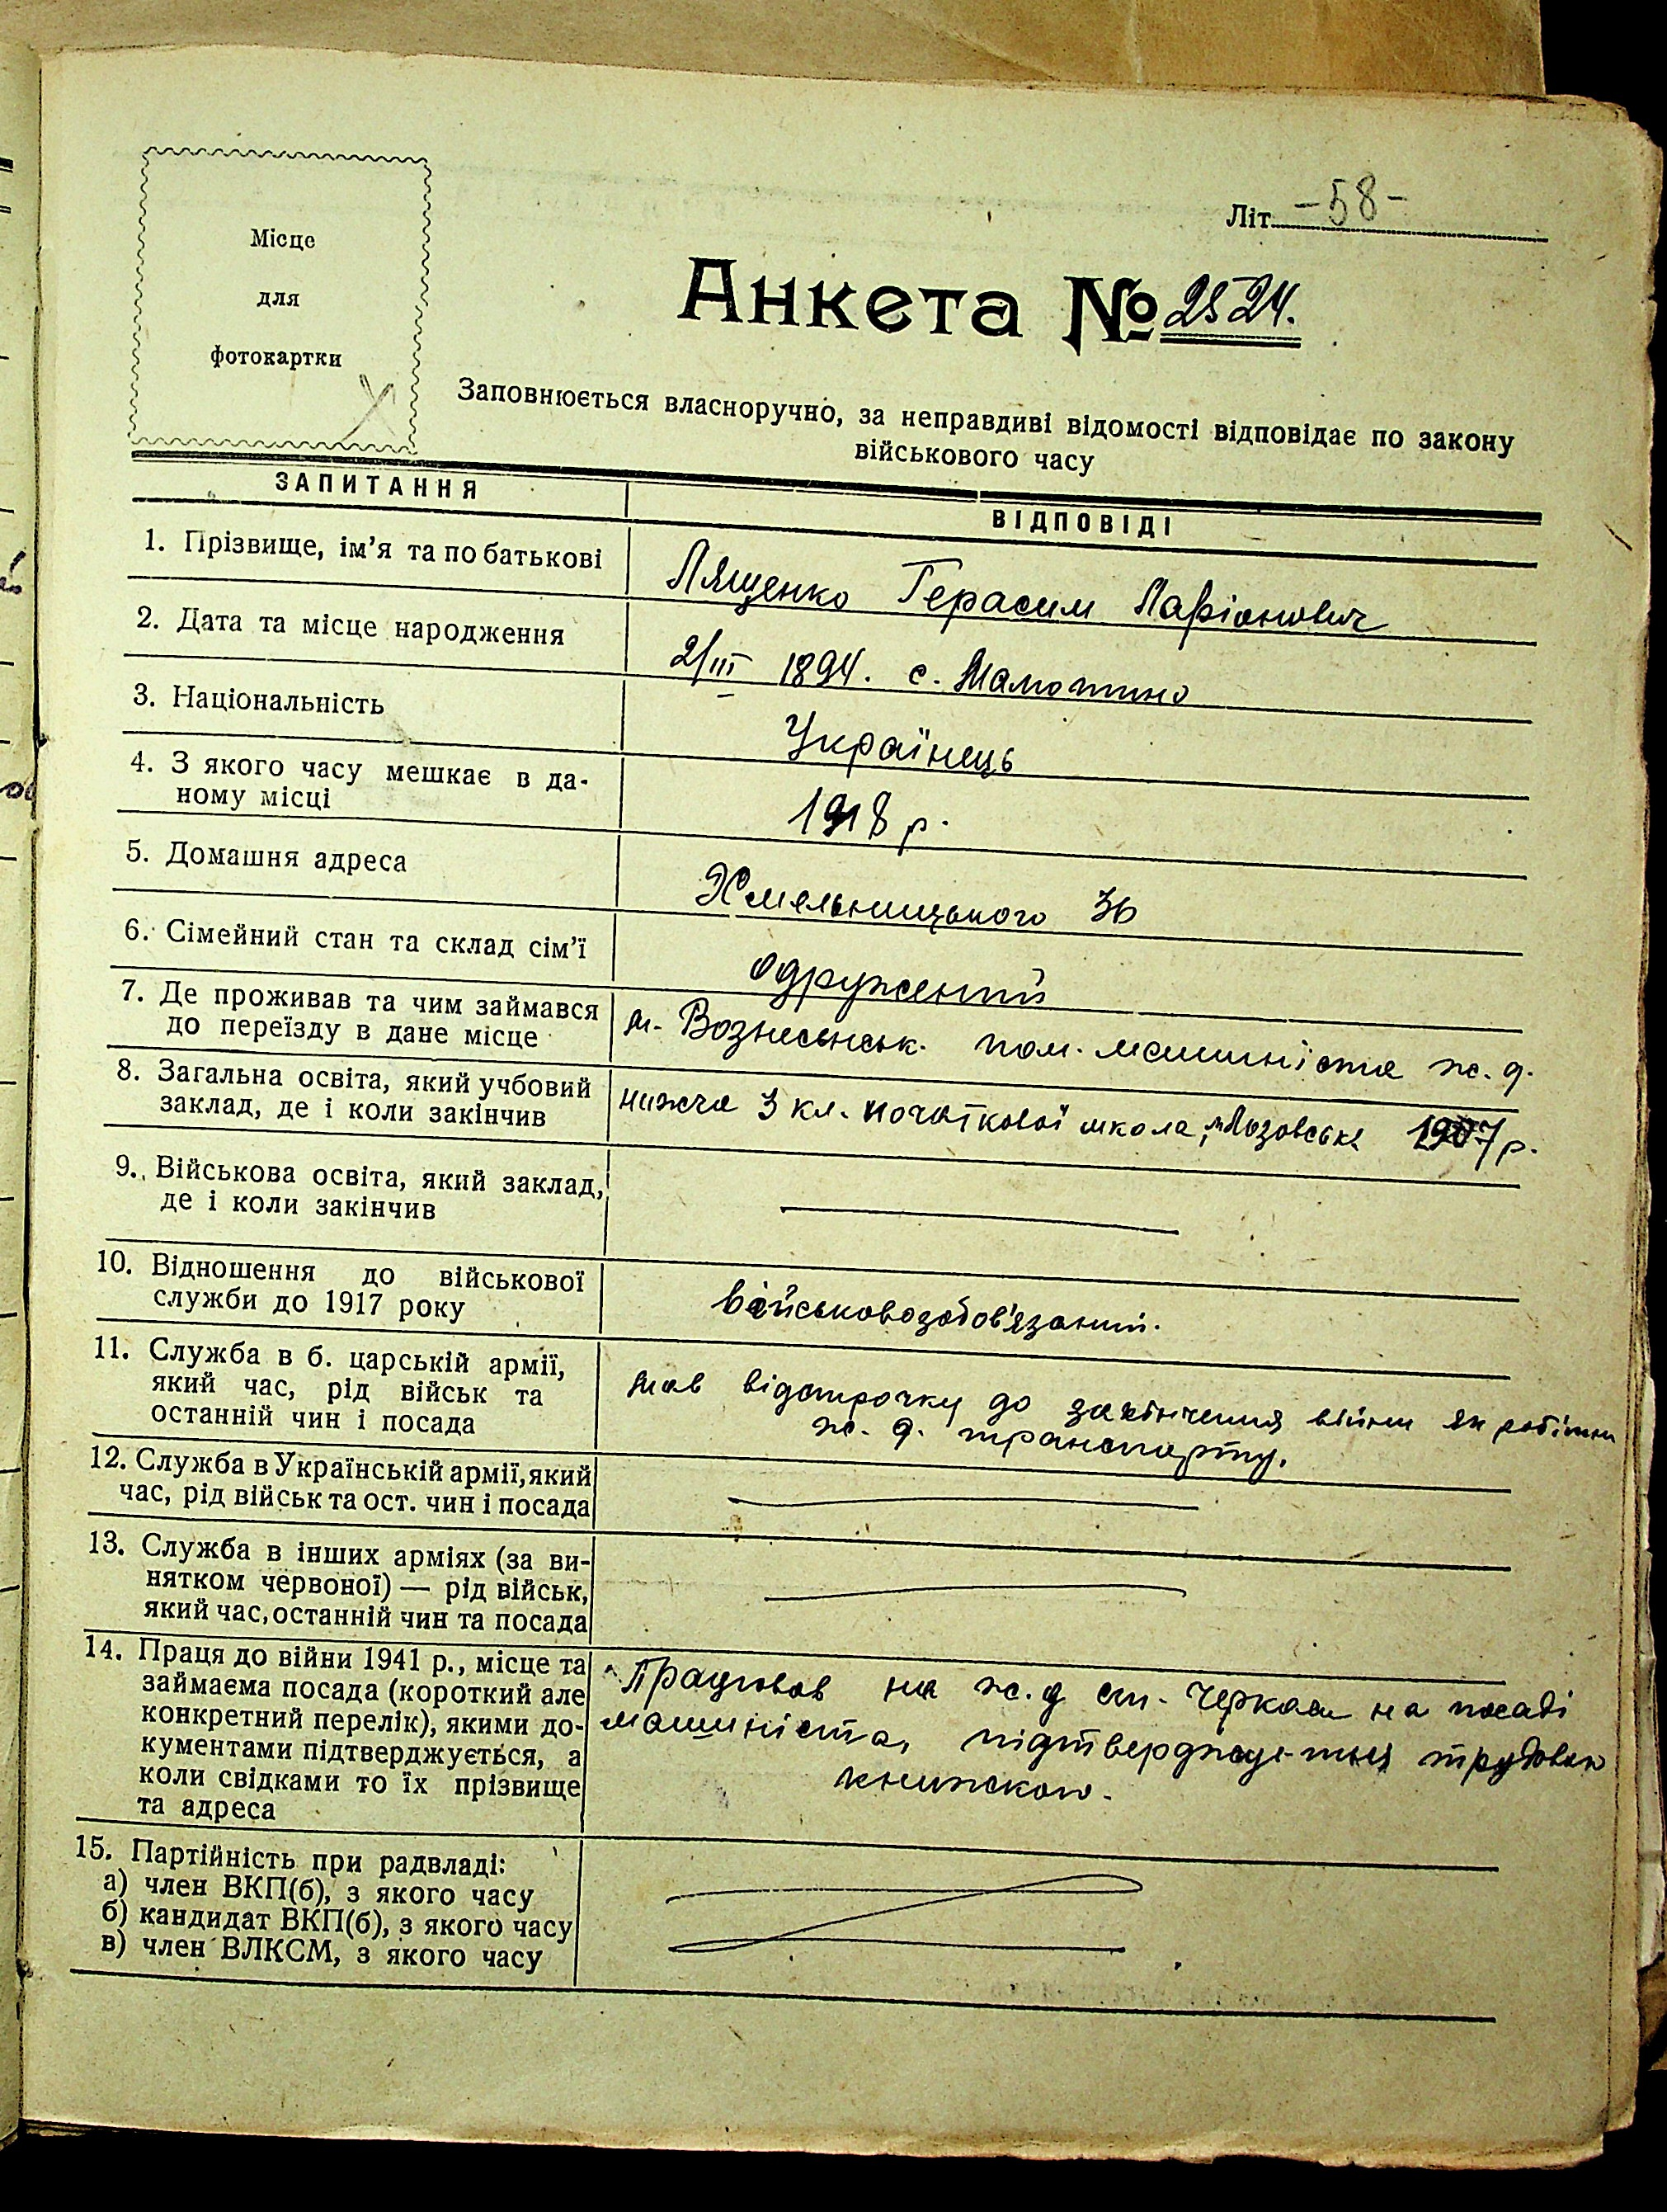 Літ. -58-
Місце
для
фотокартки
Анкета № 2524.
Заповнюється власноручно, за неправдиві відомості відповідає по закону
військового часу
ЗАПИТАННЯ
ВІДПОВІДІ
1. Прізвище, ім'я та по батькові
Лященко Герасим Ларіонович
2. Дата та місце народження
2/III 1894. с. Мамотино
3. Національність
Українець
4. З якого часу мешкає в да-
ному місці
1918 р.
5. Домашня адреса
Хмельницького 36
6. Сімейний стан та склад сім'ї
одружений
7. Де проживав та чим займався
до переїзду в дане місце
м. Вознесенськ. пом. машиніста ж. д.
8. Загальна освіта, який учбовий
заклад, де і коли закінчив
нижча 3 кл. початкової школа, Лозовська 1907 р.
9. Військова освіта, який заклад,
де і коли закінчив
10. Відношення до військової
служби до 1917 року
військовозобов'язаний.
11. Служба в б. царській армії,
який час, рід військ та
останній чин і посада
мав відстрочку до закінчення війни як робітник
ж. д. транспорту.
12. Служба в Українській армії, який
час, рід військ та ост. чин і посада
13. Служба в інших арміях (за ви-
нятком червоної) — рід військ,
який час, останній чин та посада
14. Праця до війни 1941 р., місце та
займаєма посада (короткий але
конкретний перелік), якими до-
кументами підтверджується, а
коли свідками то їх прізвище
та адреса
Працював на ж.д ст. Черкаси на посаді
машиніста, підтверджує-ться трудовою
книжкою.
15. Партійність при радвладі:
а) член ВКП(б), з якого часу
б) кандидат ВКП(б), з якого часу
в) член ВЛКСМ, з якого часу